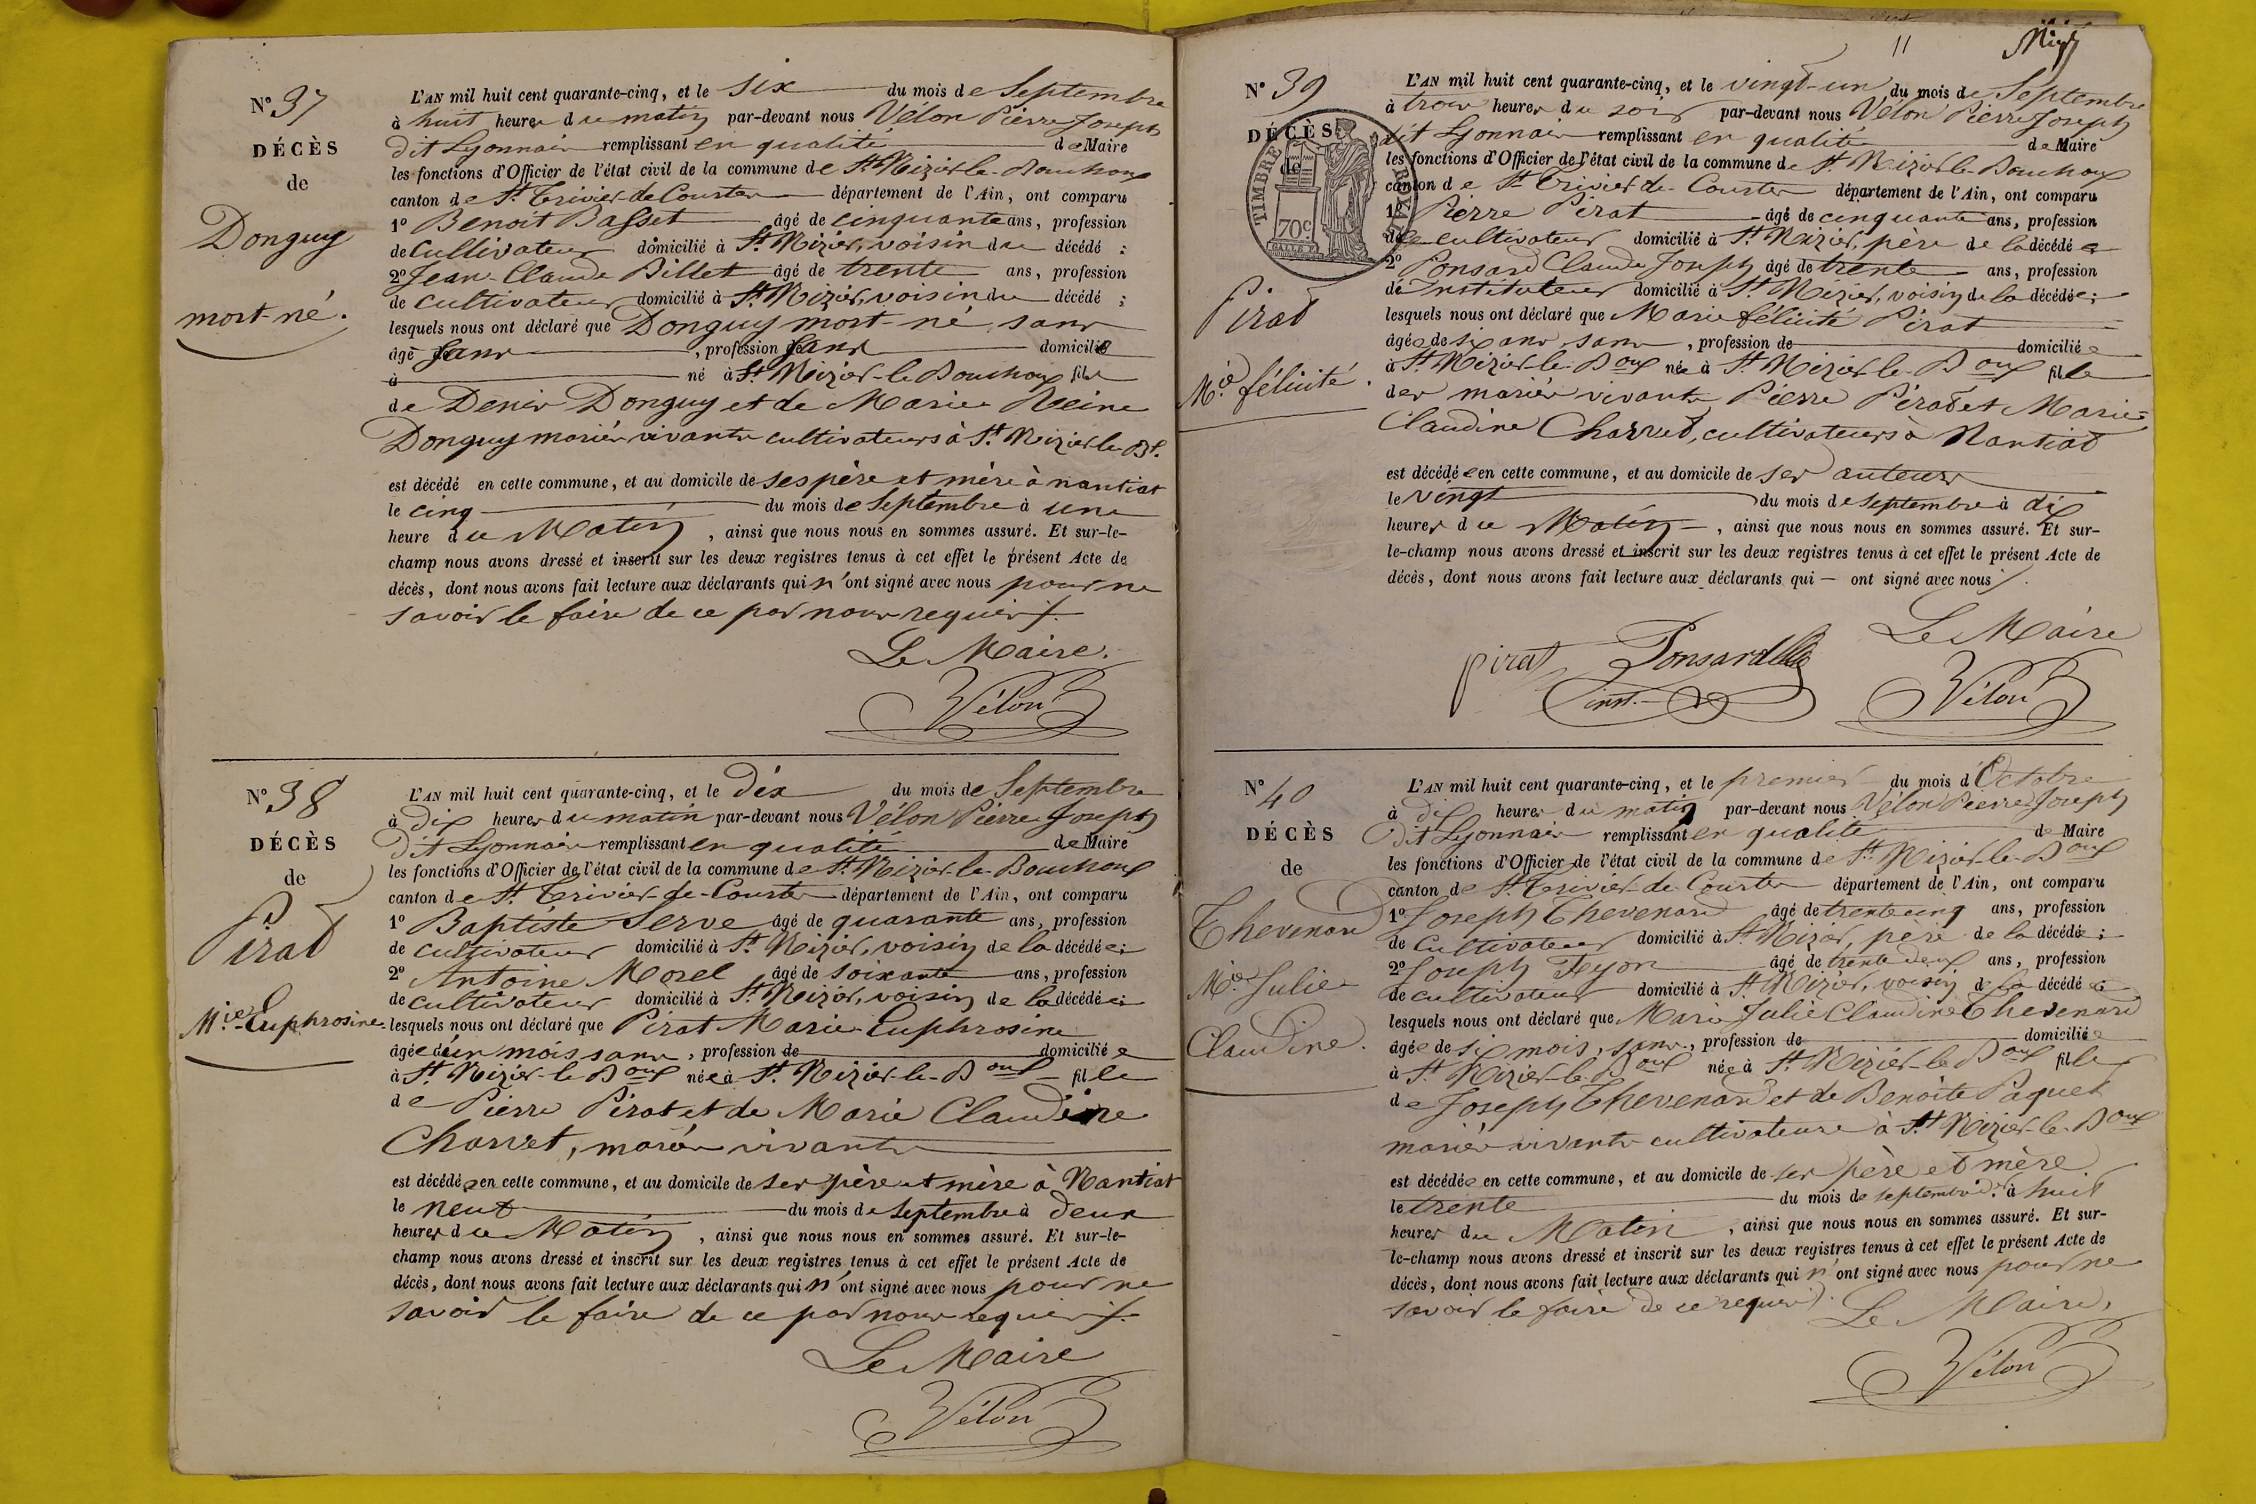 N° 37
DÉCÈS
de
Donguy
mort-né.
L'AN mil huit cent quarante-cinq, et le six du mois de Septembre
à huit heures du matin par-devant nous Vélon Pierre Joseph
dit Lyonnais remplissant en qualité de Maire
les fonctions d'Officier de l'état civil de la commune de St Nizier-le-Bouchoux
canton de St Trivier-de-Courtes département de l'Ain, ont comparu
1° Benoit Basset âgé de cinquante ans, profession
de cultivateur domicilié à St Nizier, voisin du décédé ;
2° Jean-Claude Billet âgé de trente ans, profession
de cultivateur domicilié à St Nizier, voisin du décédé ;
lesquels nous ont déclaré que Donguy mort-né, sans
âgé de sans, profession de sans domicilié
à né à St Nizier-le-Bouchoux fils
de Denis Donguy et de Marie Reine
Donguy mariés vivants cultivateurs à St Nizier-le-Bx.
est décédé en cette commune, et au domicile de ses père et mère à nantiat
le cinq du mois de Septembre à une
heure du Matin, ainsi que nous nous en sommes assuré. Et sur-le-
champ nous avons dressé et inscrit sur les deux registres tenus à cet effet le présent Acte de
décès, dont nous avons fait lecture aux déclarants qui n'ont signé avec nous pour ne
savoir le faire de ce par nous requis.
Le Maire.
Vélon
N° 38
DÉCÈS
de
Pirat
Mie Euphrosine
L'AN mil huit cent quarante-cinq, et le dix du mois de Septembre
à dix heures du matin par-devant nous Vélon Pierre Joseph
dit Lyonnais remplissant en qualité de Maire
les fonctions d'Officier de l'état civil de la commune de St Nizier-le-Bouchoux
canton de St Trivier-de-Courtes département de l'Ain, ont comparu
1° Baptiste Serve âgé de quarante ans, profession
de cultivateur domicilié à St Nizier, voisin de la décédée ;
2° Antoine Morel âgé de soixante ans, profession
de cultivateur domicilié à St Nizier, voisin de la décédée ;
lesquels nous ont déclaré que Pirat Marie Euphrosine
âgée d'un mois sans, profession de domiciliée
à St Nizier-le-Boux née à St Nizier-le-Boux fille
de Pierre Pirat et de Marie Claudine
Charvet, mariés vivants
est décédée en cette commune, et au domicile de ses père et mère à Nantiat
le neuf du mois de Septembre à deux
heures du Matin, ainsi que nous nous en sommes assuré. Et sur-le-
champ nous avons dressé et inscrit sur les deux registres tenus à cet effet le présent Acte de
décès, dont nous avons fait lecture aux déclarants qui n'ont signé avec nous pour ne
savoir le faire de ce par nous requis.
Le Maire
Vélon
11
N° 39
DÉCÈS
de
TIMBRE ROYAL
70c
Pirat
Mie félicité.
L'AN mil huit cent quarante-cinq, et le vingt-un du mois de Septembre
à trois heures du soir par-devant nous Vélon Pierre Joseph
dit Lyonnais remplissant en qualité de Maire
les fonctions d'Officier de l'état civil de la commune de St Nizier-le-Bouchoux
canton de St Trivier-de-Courtes département de l'Ain, ont comparu
1° Pierre Pirat âgé de cinquante ans, profession
de cultivateur domicilié à St Nizier, père de la décédée
2° Ponsard Claude Joseph âgé de trente ans, profession
de Instituteur domicilié à St Nizier, voisin de la décédée ;
lesquels nous ont déclaré que Marie félicité Pirat
âgée de six ans, sans, profession de domiciliée
à St Nizier-le-Boux née à St Nizier-le-Boux fille
des mariés vivants Pierre Pirat et Marie
Claudine Charvet, cultivateurs à Nantiat
est décédée en cette commune, et au domicile de ses auteurs
le vingt du mois de Septembre à dix
heures du Matin, ainsi que nous nous en sommes assuré. Et sur-
le-champ nous avons dressé et inscrit sur les deux registres tenus à cet effet le présent Acte de
décès, dont nous avons fait lecture aux déclarants qui — ont signé avec nous.
Le Maire
pirat Ponsard
inst. Vélon
N° 40
DÉCÈS
de
Thevenard
Mie Julie
Claudine.
L'AN mil huit cent quarante-cinq, et le premier du mois d'Octobre
à dix heures du matin par-devant nous Vélon Pierre Joseph
dit Lyonnais remplissant en qualité de Maire
les fonctions d'Officier de l'état civil de la commune de St Nizier-le-Boux
canton de St Trivier-de-Courtes département de l'Ain, ont comparu
1° Joseph Thevenard âgé de trente cinq ans, profession
de cultivateur domicilié à St Nizier, père de la décédée ;
2° Joseph Feyon âgé de trente deux ans, profession
de cultivateur domicilié à St Nizier, voisin de la décédée
lesquels nous ont déclaré que Marie Julie Claudine Thevenard
âgée de six mois, sans, profession de domiciliée
à St Nizier-le-Boux née à St Nizier-le-Boux fille
de Joseph Thevenard et de Benoite Paquet
mariés vivants cultivateurs à St Nizier-le-Boux
est décédée en cette commune, et au domicile de ses père et mère.
le trente du mois de septembre à huit
heures du Matin, ainsi que nous nous en sommes assuré. Et sur-
le-champ nous avons dressé et inscrit sur les deux registres tenus à cet effet le présent Acte de
décès, dont nous avons fait lecture aux déclarants qui n'ont signé avec nous pour ne
savoir le faire de ce requis.
Le Maire,
Vélon